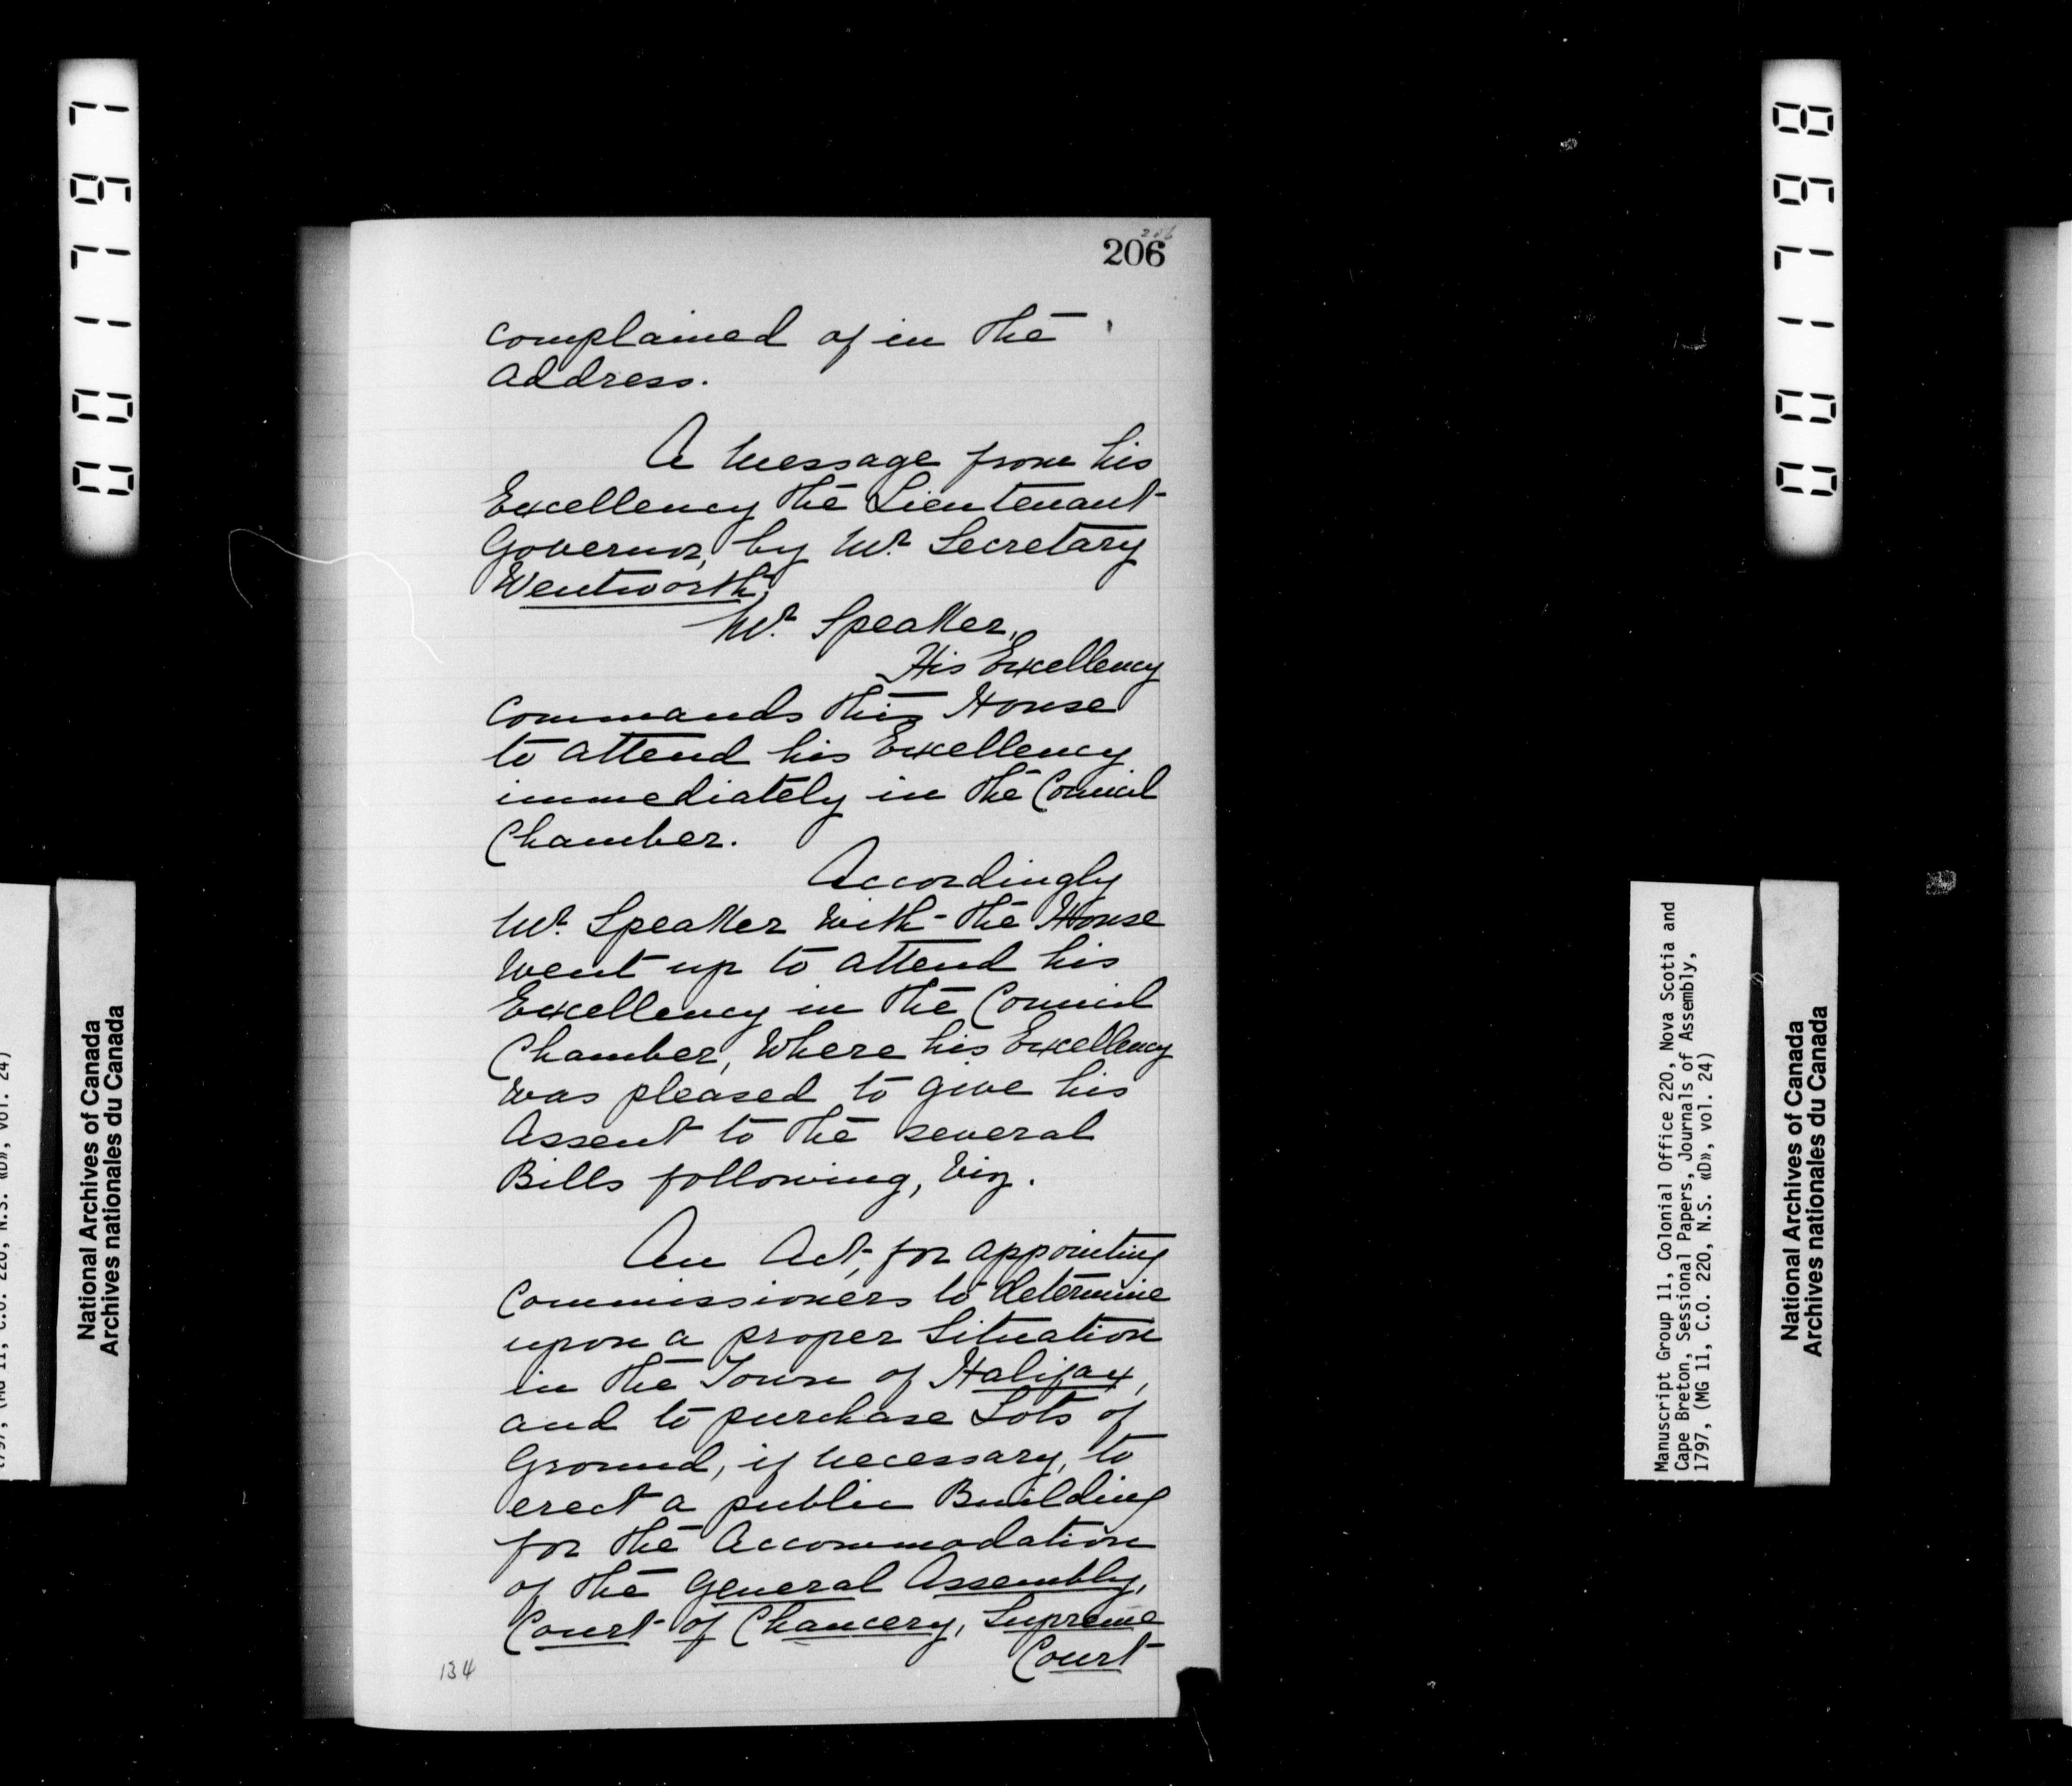 206
206
complained of in the
Address.
A Message from his
Excellency the Lieutenant
Governor, by Mr. Secretary
Wentworth.
Mr. Speaker,
His Excellency
Commands this House
to attend his Excellency
immediately in the Council
Chamber.
Accordingly
Mr. Speaker with the House
went up to attend his
Excellency in the Council
Chamber, Where his Excellency
was pleased to give his
Assent to the several
Bills following, Viz.
An Act, for appointing
Commissioners to determine
upon a proper Situation
in the Town of Halifax,
and to purchase Lots of
Ground, if necessary, to
erect a public Building
for the Accommodation
of the General Assembly,
Court of Chancery, Supreme
Court
134
001797
National Archives of Canada
Archives nationales du Canada
001798
Manuscript Group 11, Colonial Office 220, Nova Scotia and
Cape Breton, Sessional Papers, Journals of Assembly,
1797, (MG 11, C.O. 220, N.S. «D», vol. 24)
National Archives of Canada
Archives nationales du Canada